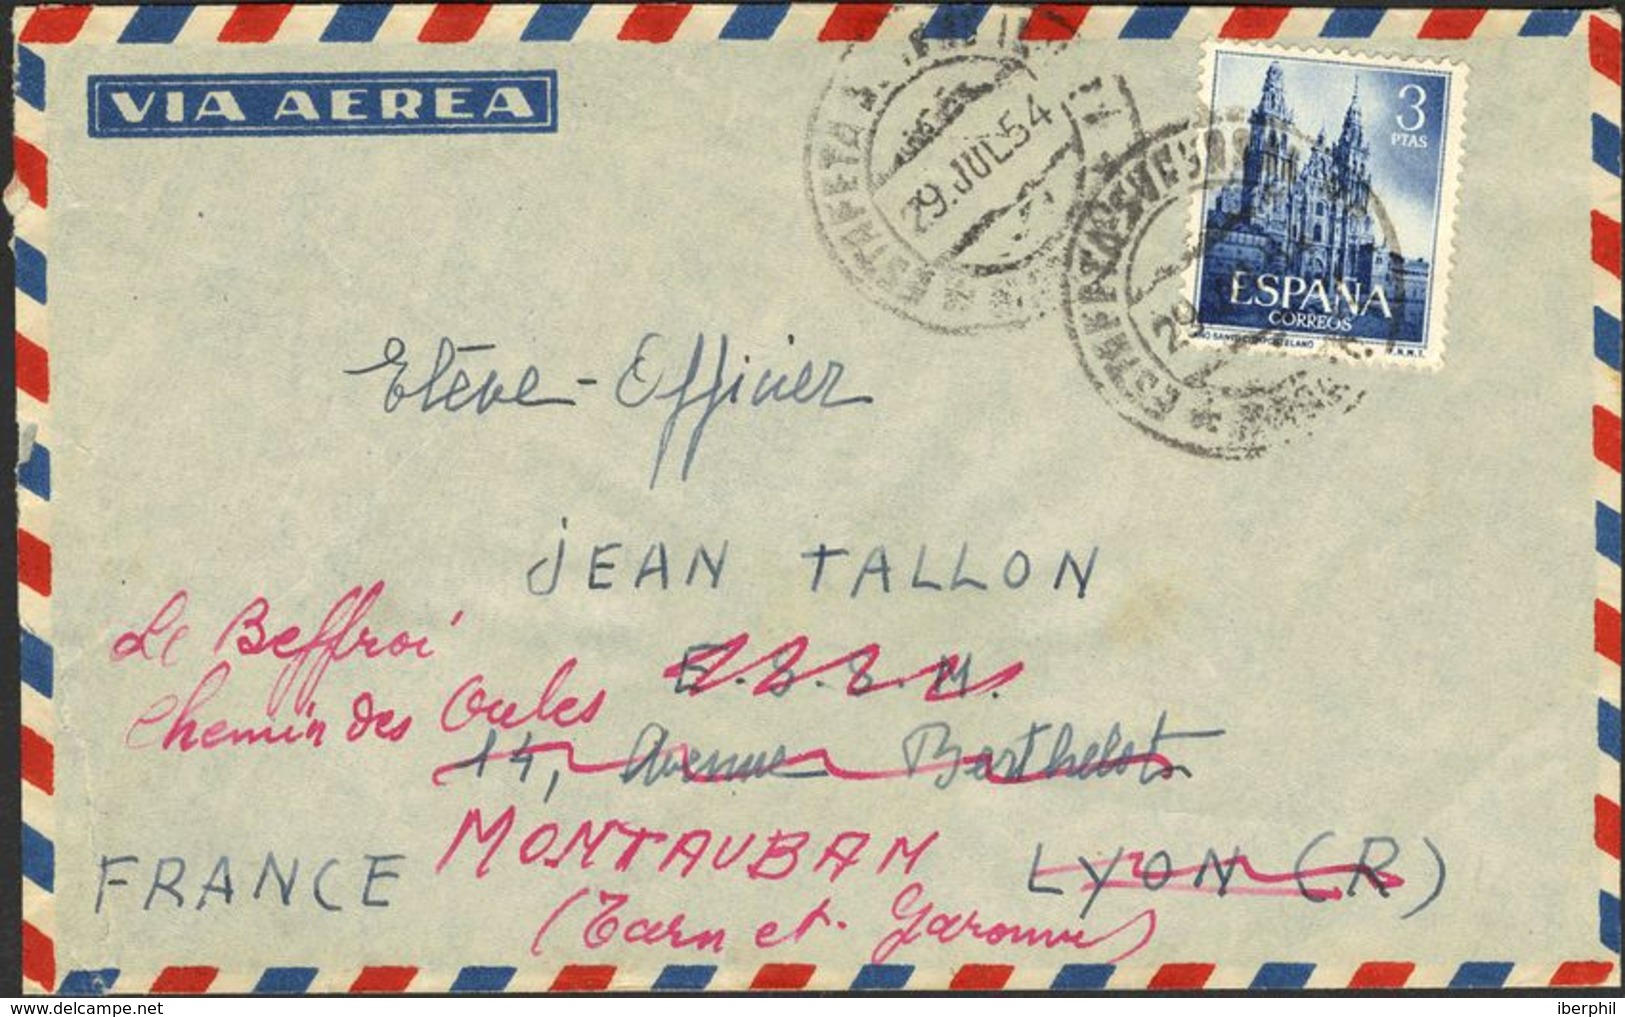 VIA AEREA
ESTAFETA
29.JUL.54
3
PTAS
ESPAÑA
CORREOS
ESTAFETA SUCURSAL
29
F.N.M.T.
Elève-Officier
JEAN TALLON
E.S.S.M.
14, Avenue Berthelot
LYON (R)
FRANCE
Le Beffroi
Chemin des Oules
MONTAUBAN
(Tarn et Garonne)
iberphil